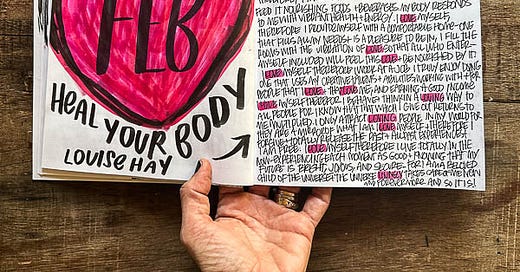 FEB
HEAL YOUR BODY
LOUISE HAY
FEED IT NOURISHING FOODS + BEVERAGES + MY BODY RESPONDS
TO ME WITH VIBRANT HEALTH + ENERGY. I LOVE MYSELF,
THEREFORE I PROVIDE MYSELF WITH A COMFORTABLE HOME-ONE
THAT FILLS ALL MY NEEDS + IS A PLEASURE TO BE IN. I FILL THE
ROOMS WITH THE VIBRATION OF LOVE SO THAT ALL WHO ENTER-
MYSELF INCLUDED WILL FEEL THIS LOVE + BE NOURISHED BY IT.
I LOVE MYSELF THEREFORE I WORK AT A JOB I TRULY ENJOY DOING
ONE THAT USES MY CREATIVE TALENTS + ABILITIES WORKING WITH + FOR
PEOPLE THAT I LOVE + THAT LOVE ME, AND EARNING A GOOD INCOME.
I LOVE MYSELF THEREFORE, I BEHAVE + THINK IN A LOVING WAY TO
ALL PEOPLE FOR I KNOW THAT THAT WHICH I GIVE OUT RETURNS TO
ME MULTIPLIED. I ONLY ATTRACT LOVING PEOPLE IN MY WORLD FOR
THEY ARE A MIRROR OF WHAT I AM. I LOVE MYSELF + THEREFORE I
FORGIVE + TOTALLY RELEASE THE PAST + ALL PAST EXPERIENCES +
I AM FREE. I LOVE MYSELF THEREFORE I LOVE TOTALLY IN THE
NOW-EXPERIENCING EACH MOMENT AS GOOD + KNOWING THAT MY
FUTURE IS BRIGHT, JOYOUS, AND SECURE-FOR I AM A BELOVED
CHILD OF THE UNIVERSE + THE UNIVERSE LOVINGLY TAKES CARE OF ME NOW
AND FOREVERMORE. AND SO IT IS!